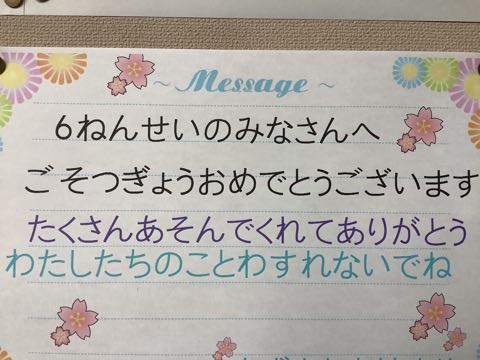 ~ Message ~
6ねんせいのみなさんへ
ごそつぎょうおめでとうございます
たくさんあそんでくれてありがとう
わたしたちのことわすれないでね